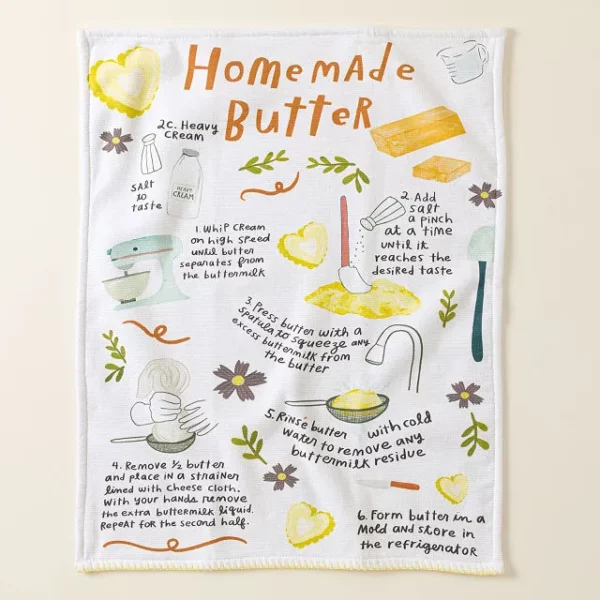 Homemade
Butter
2c. Heavy
Cream
Salt
to
taste
HEAVY
CREAM
1. Whip cream
on high speed
until butter
separates from
the buttermilk
2. Add
salt
a pinch
at a time
until it
reaches the
desired taste
3. Press butter with a
spatula to squeeze any
excess buttermilk from
the butter
4. Remove ½ butter
and place in a strainer
lined with cheese cloth.
With your hands remove
the extra buttermilk liquid.
Repeat for the second half.
5. Rinse butter with cold
water to remove any
buttermilk residue
6. Form butter in a
mold and store in
the refrigerator